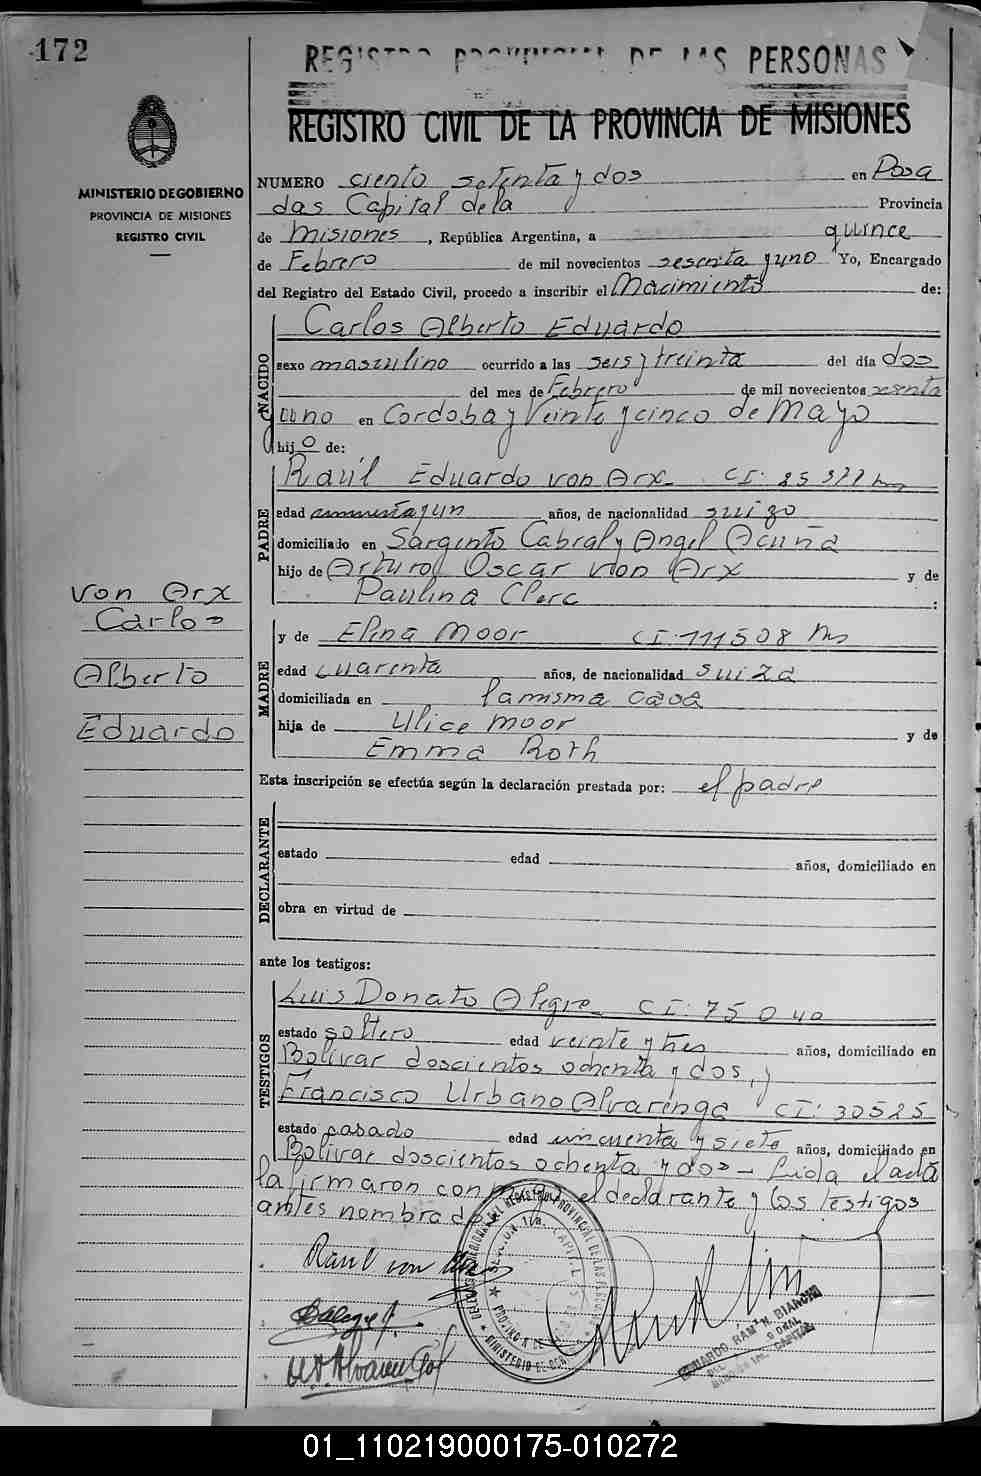 172
REGISTRO PROVINCIAL DE LAS PERSONAS
REGISTRO CIVIL DE LA PROVINCIA DE MISIONES
MINISTERIO DE GOBIERNO
PROVINCIA DE MISIONES
REGISTRO CIVIL
NUMERO ciento setenta y dos en Posa
das Capital de la Provincia
de Misiones, República Argentina, a quince
de Febrero de mil novecientos sesenta y uno Yo, Encargado
del Registro del Estado Civil, procedo a inscribir el Nacimiento de:
NACIDO
Carlos Alberto Eduardo
sexo masculino ocurrido a las seis y treinta del día dos
del mes de Febrero de mil novecientos sesenta
y uno en Cordoba y Veinte y cinco de Mayo
hijo de:
PADRE
Raúl Eduardo von Arx CI:
edad y un años, de nacionalidad suizo
domiciliado en Sargento Cabral y Angel Acuña
hijo de Arturo Oscar von Arx y de
Paulina Clerc :
von Arx
Carlos
Alberto
Eduardo
MADRE
y de Elina Moor CI: 111508
edad cuarenta años, de nacionalidad suiza
domiciliada en la misma casa
hija de Ulice Moor y de
Emma Roth
Esta inscripción se efectúa según la declaración prestada por: el padre
DECLARANTE
estado edad años, domiciliado en
obra en virtud de
ante los testigos:
TESTIGOS
Luis Donato Alegre CI: 75040
estado soltero edad veinte y tres años, domiciliado en
Bolivar doscientos ochenta y dos, y
Francisco Urbano Alvarenga CI: 30525
estado casado edad cincuenta y siete años, domiciliado en
Bolivar doscientos ochenta y dos - Leida el acta
la firmaron conmigo el declarante y los testigos
antes nombrados
Raúl von Arx
EDUARDO RAMON BIANCHI
01_110219000175-010272